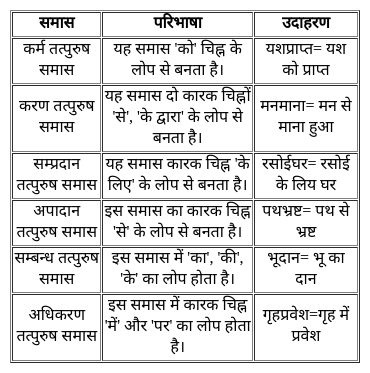 समास परिभाषा उदाहरण
कर्म तत्पुरुष समास
यह समास 'को' चिह्न के लोप से बनता है।
यशप्राप्त= यश को प्राप्त
करण तत्पुरुष समास
यह समास दो कारक चिह्नों 'से', 'के द्वारा' के लोप से बनता है।
मनमाना= मन से माना हुआ
सम्प्रदान तत्पुरुष समास
यह समास कारक चिह्न 'के लिए' के लोप से बनता है।
रसोईघर= रसोई के लिय घर
अपादान तत्पुरुष समास
इस समास का कारक चिह्न 'से' के लोप से बनता है।
पथभ्रष्ट= पथ से भ्रष्ट
सम्बन्ध तत्पुरुष समास
इस समास में 'का', 'की', 'के' का लोप होता है।
भूदान= भू का दान
अधिकरण तत्पुरुष समास
इस समास में कारक चिह्न 'में' और 'पर' का लोप होता है।
गृहप्रवेश=गृह में प्रवेश